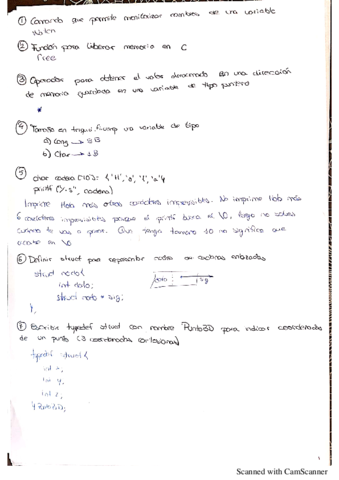 ① Comando que permite monitorizar nombres de una variable
watch
② Función para liberar memoria en C
free
③ Operador para obtener el valor almacenado en una dirección
de memoria guardada en una variable de tipo puntero
*
④ Tamaño en triqui.fi.upm va variable de tipo
a) long → 8B
b) Char → 1B
⑤
char cadena[10]: {'H','o','l','a'}
printf ("%s", cadena)
Imprime Hola más otros carácteres impresibles. No imprime Hola más
6 carácteres impresibles porque el printf busca el \0, luego no sabes
cuando lo vas a parar. Que tenga tamaño 10 no significa que
acabe en \0
⑥ Definir struct para representar nodos de cadenas enlazadas
struct nodo{
int dato;
struct nodo * sig;
};
dato sig
⑦ Escribir typedef struct con nombre Punto3D para indicar coordenadas
de un punto (3 coordenadas cartesianas)
typedef struct {
int x,
int y,
int z,
} Punto3D;
1
Scanned with CamScanner